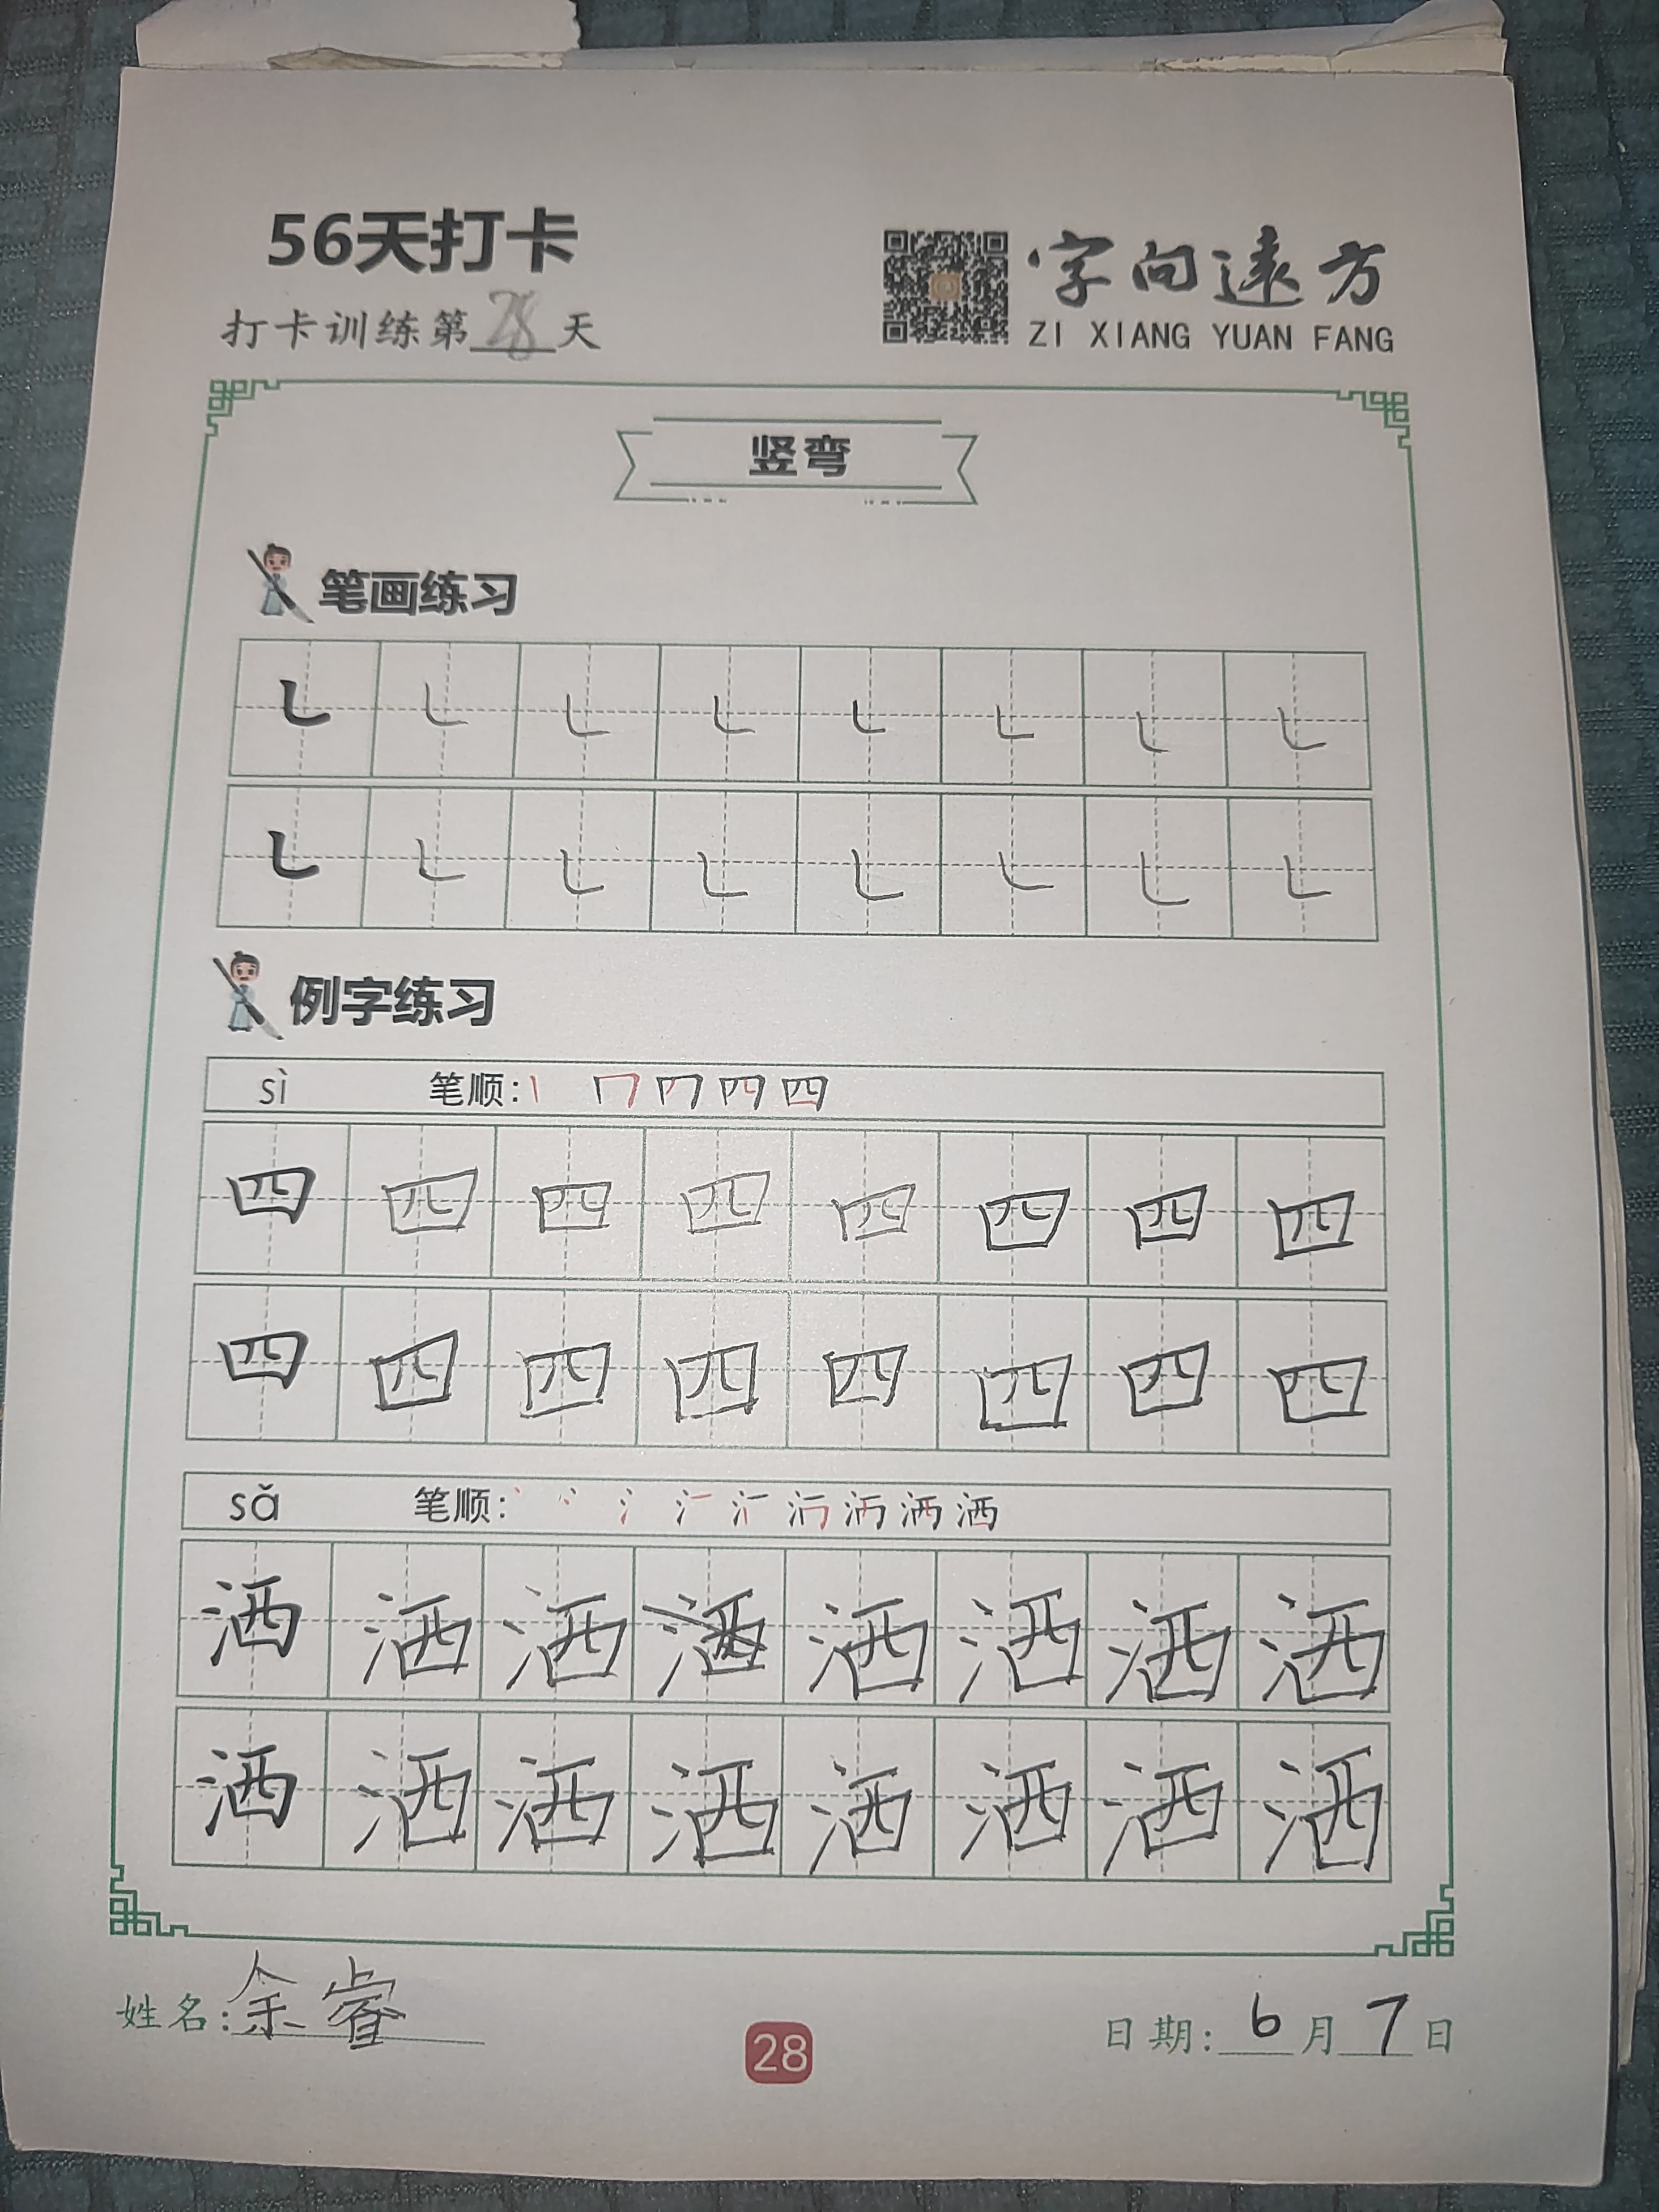 56天打卡
打卡训练第28天
字向遠方
ZI XIANG YUAN FANG
竖弯
笔画练习
例字练习
sì 笔顺:
四 四 四 四 四 四 四 四
四 四 四 四 四 四 四 四
sǎ 笔顺:
洒 洒 洒 洒 洒 洒 洒 洒
洒 洒 洒 洒 洒 洒 洒 洒
姓名:余睿
28
日期:6月7日